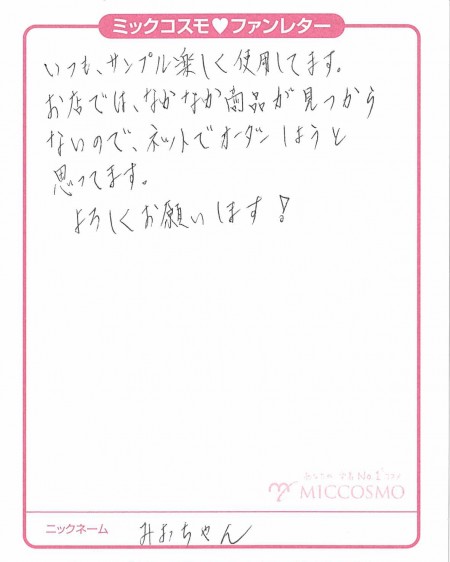 ミックコスモ♥ファンレター
いつも、サンプル楽しく使用してます。
お店では、なかなか商品が見つから
ないので、ネットでオーダーしようと
思ってます。
よろしくお願いします!
MICCOSMO
ニックネーム みおちゃん